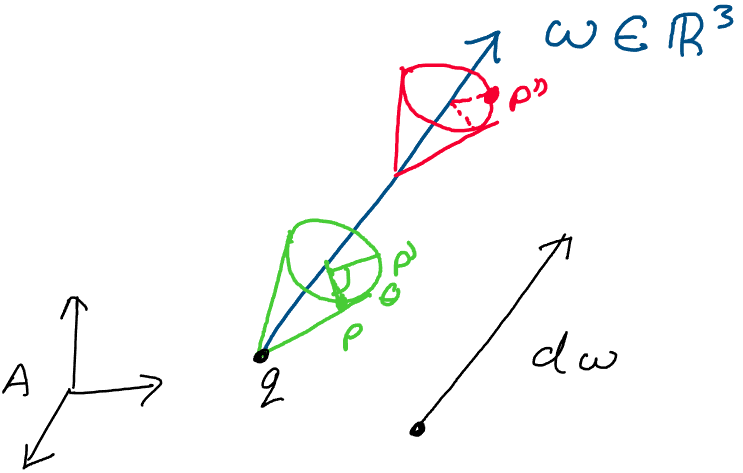 ω ∈ ℝ³
p''
p'
θ
p
A
q
dω